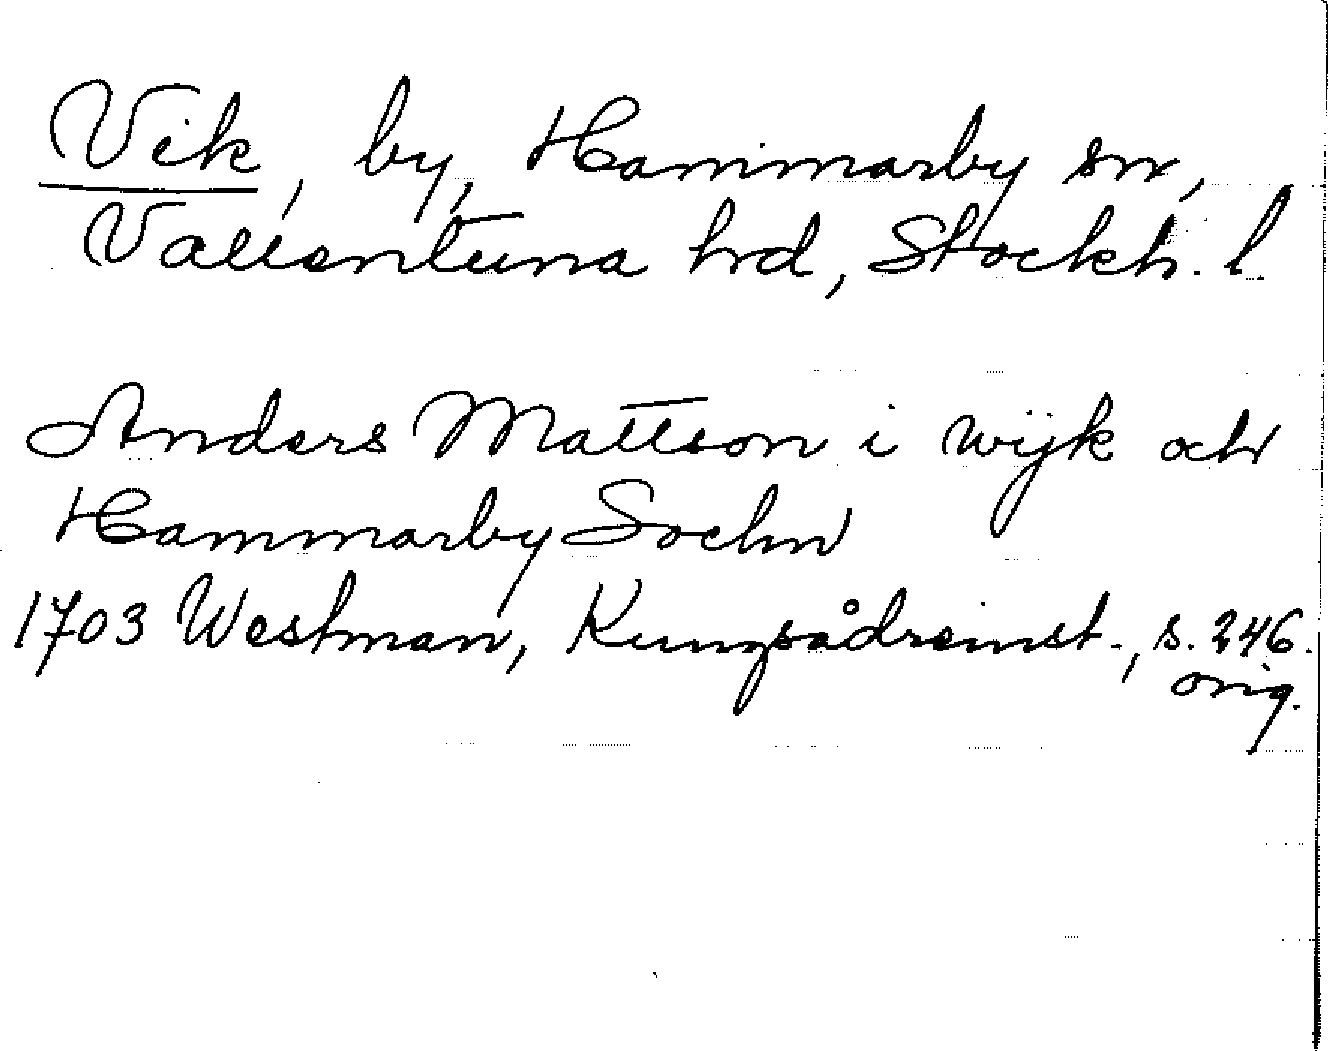 Vik, by, Hammarby sn,
Vallentuna hrd, Stockh. l.
Anders Mattson i wijk och
Hammarby Sochn
1703 Westman, Kungsådreinst., s. 246.
orig.